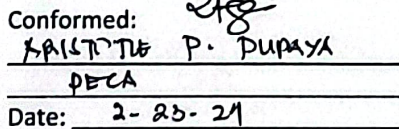 Conformed:
ARISTOTLE P. DUPAYA
PECA
Date: 2-23-21